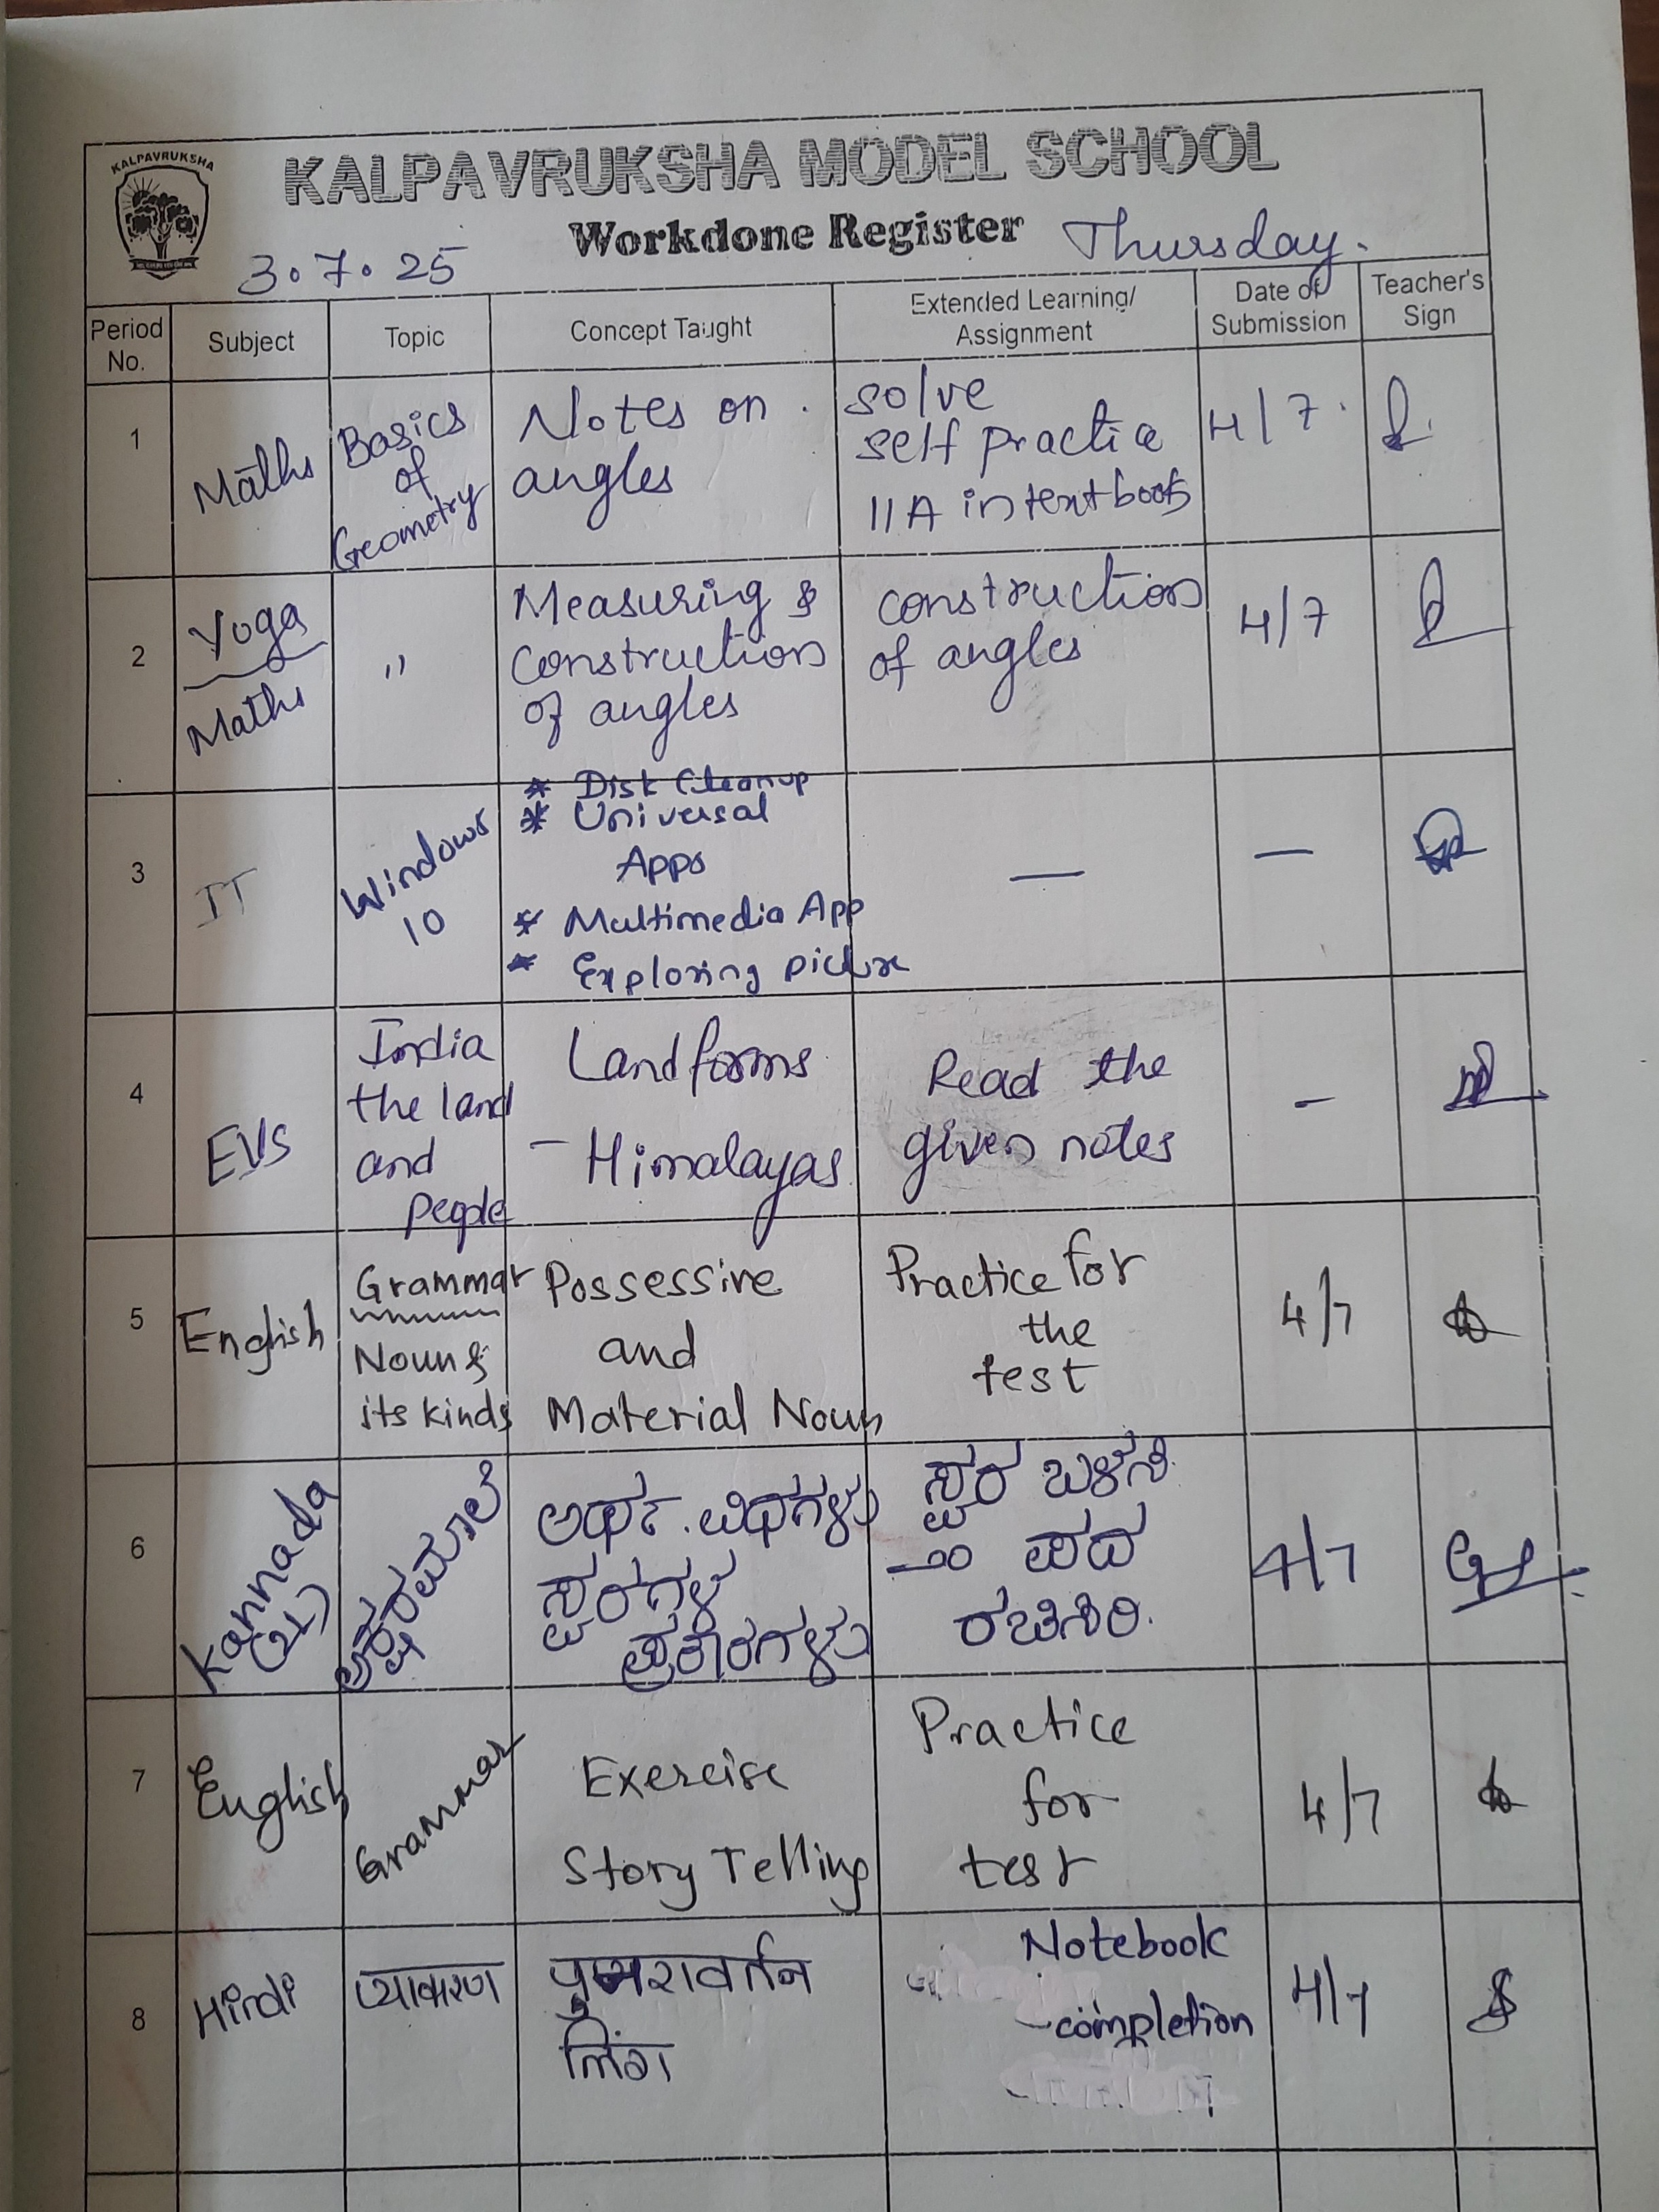 KALPAVRUKSHA
KALPAVRUKSHA MODEL SCHOOL
Workdone Register
Thursday.
3.7.25
Period No.
Subject
Topic
Concept Taught
Extended Learning/
Assignment
Date of
Submission
Teacher's
Sign
1
Maths
Basics
of
Geometry
Notes on
angles
solve
self practice
11A in textbook
4/7
2
Yoga
Maths
"
Measuring &
Construction
of angles
construction
of angles
4/7
3
IT
Windows
10
* Disk Cleanup
* Universal
Apps
* Multimedia App
* Exploring picture
—
—
4
EVS
India
the land
and
people
Landforms
– Himalayas
Read the
given notes
–
5
English
Grammar
Noun &
its kinds
Possessive
and
Material Noun
Practice for
the
test
4/7
6
Kannada
(2L)
ಅಕ್ಷರಮಾಲೆ
ಅರ್ಥ. ವಿಧಗಳು
ಸ್ವರಗಳ
ಪ್ರಕಾರಗಳು
ಸ್ವರ ಬಳಸಿ
ಪದ
ರಚಿಸಿರಿ.
4/7
7
English
Grammar
Exercise
Story Telling
Practice
for
test
4/7
8
Hindi
व्याकरण
पुनरावर्तन
लिंग
Notebook
- completion
4/7